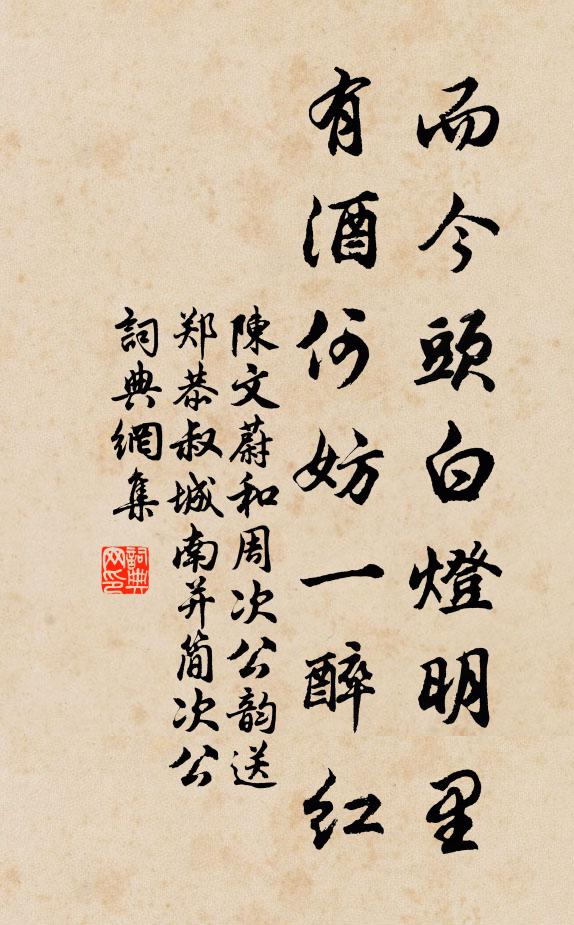 而今頭白燈明里
有酒何妨一醉紅
陳文蔚和周次公韵送
郑恭叔城南并简次公
詞典網集
詞典
网印